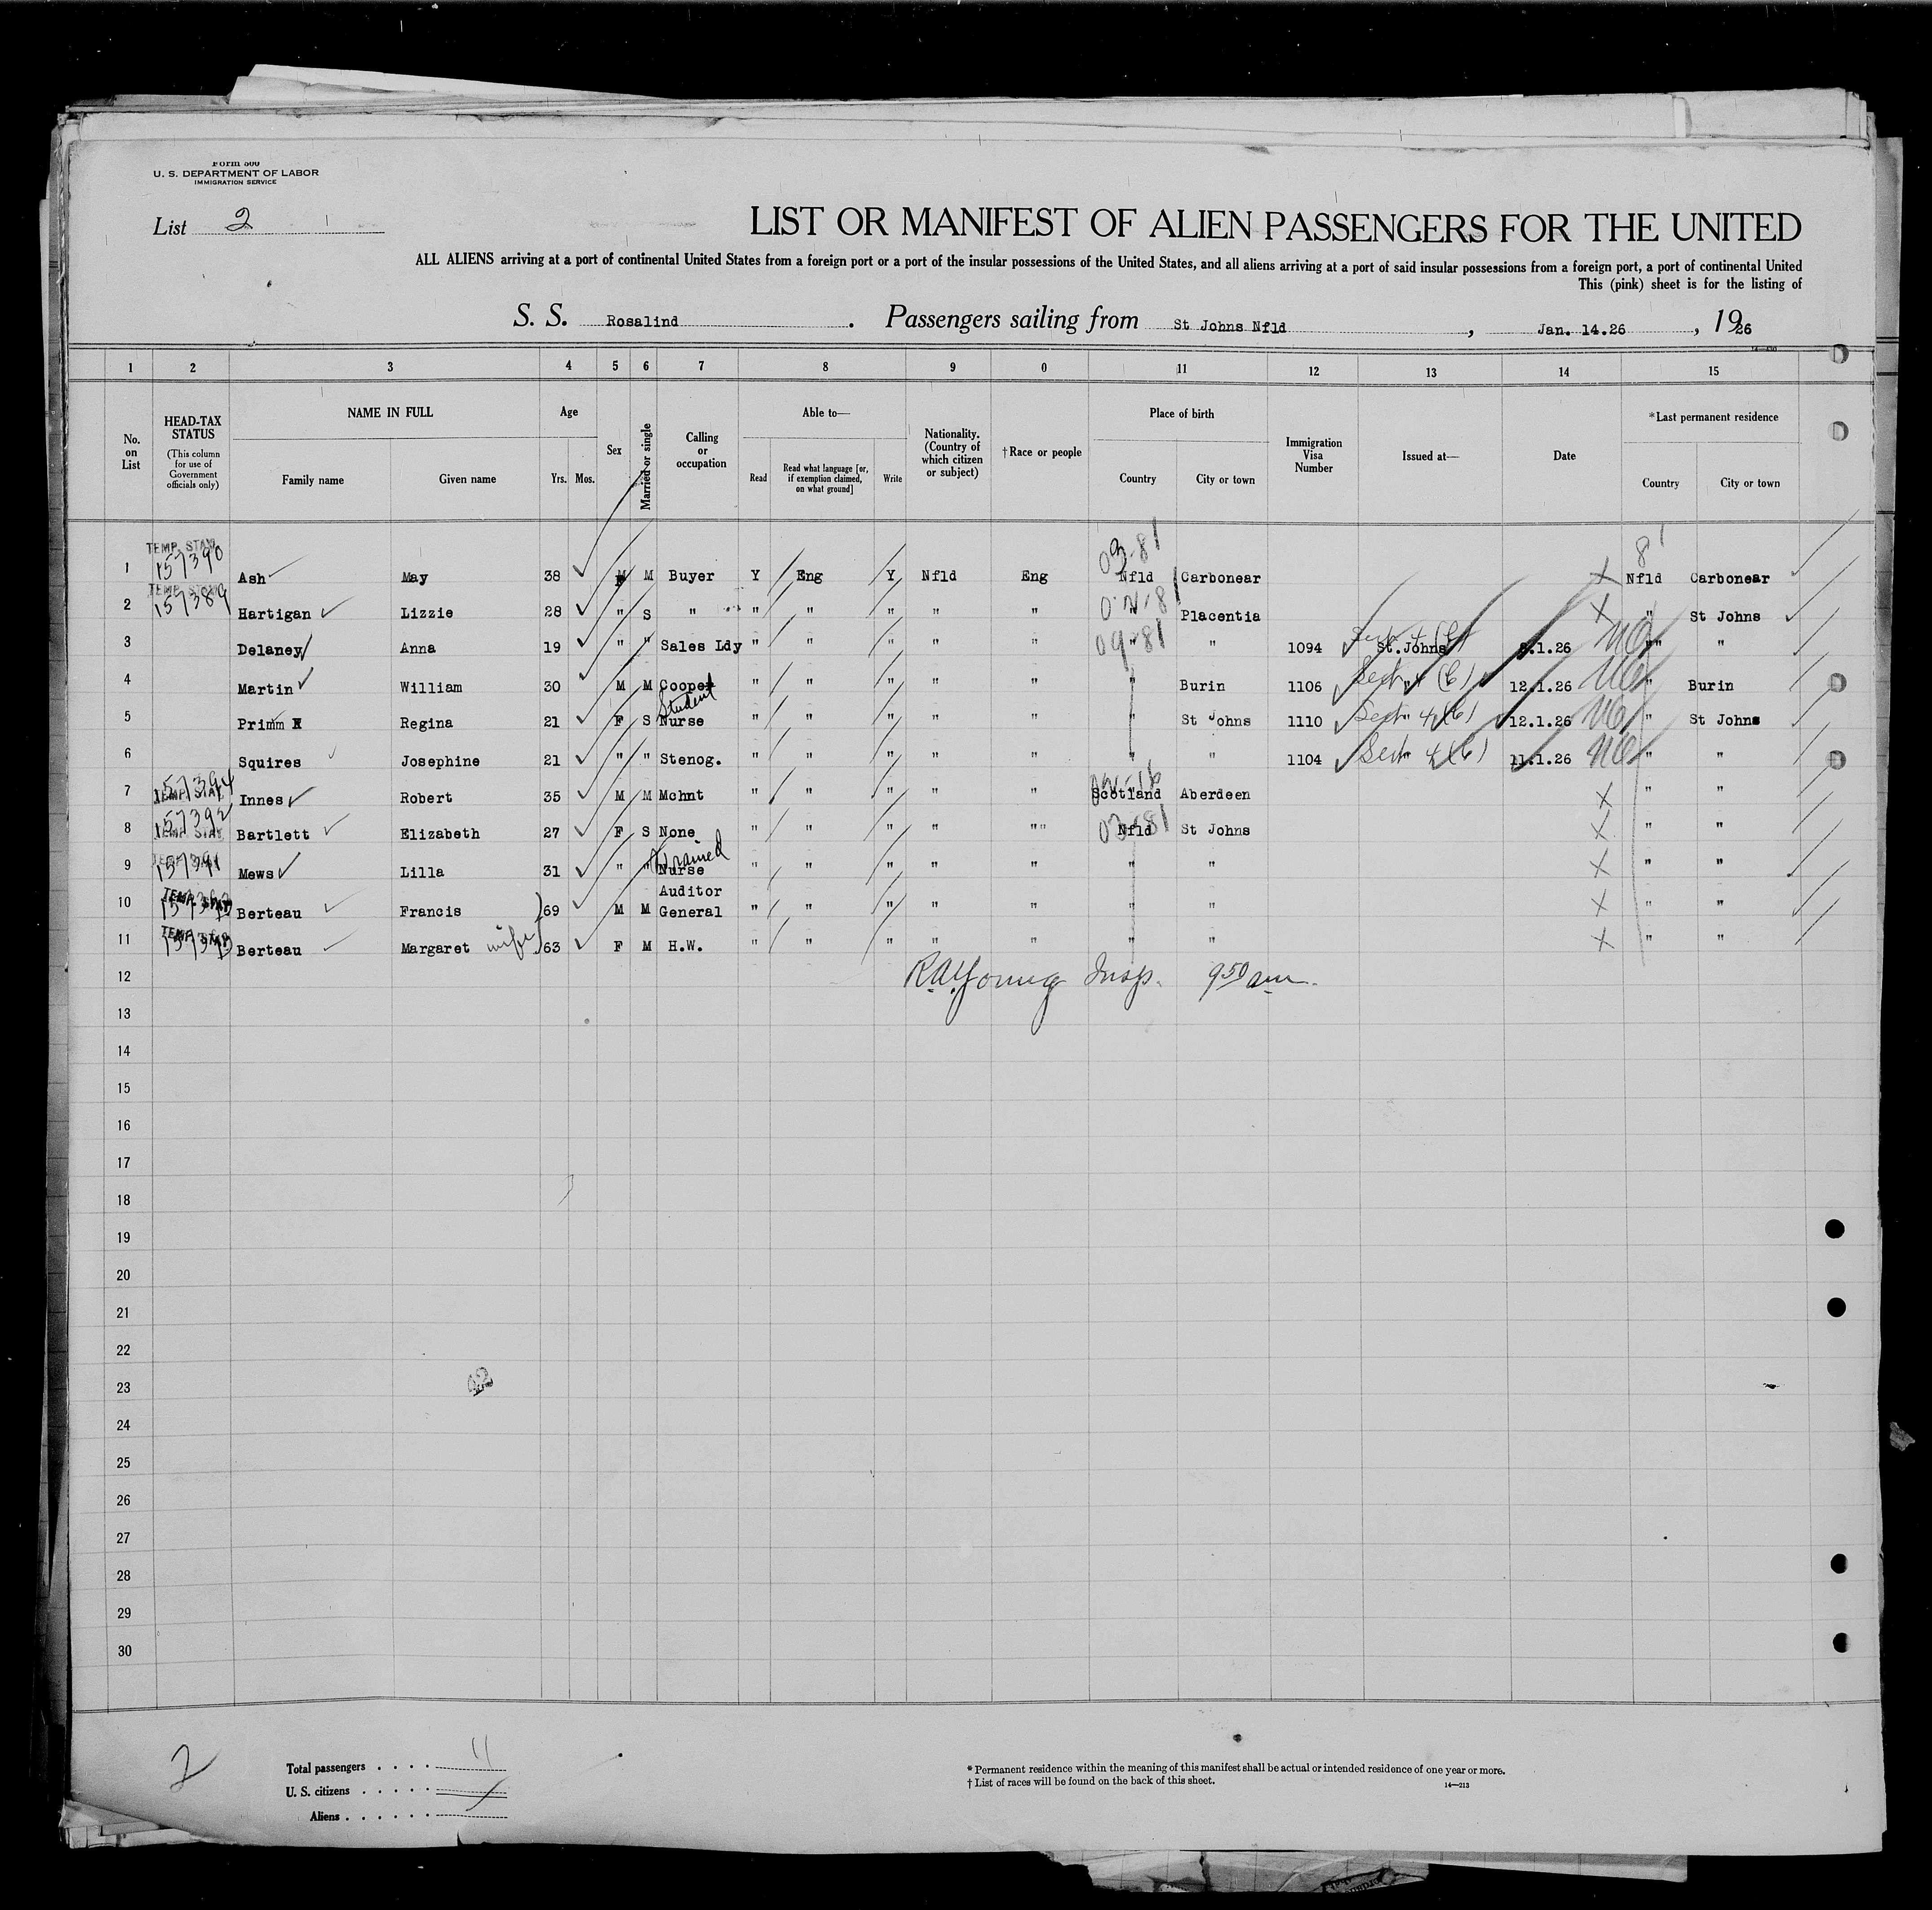 Form 500
U. S. DEPARTMENT OF LABOR
IMMIGRATION SERVICE
List 2
LIST OR MANIFEST OF ALIEN PASSENGERS FOR THE UNITED
ALL ALIENS arriving at a port of continental United States from a foreign port or a port of the insular possessions of the United States, and all aliens arriving at a port of said insular possessions from a foreign port, a port of continental United
This (pink) sheet is for the listing of
S. S. Rosalind. Passengers sailing from St Johns Nfld, Jan. 14.26, 1926
1 2 3 4 5 6 7 8 9 0 11 12 13 14 15
No. on List
HEAD-TAX STATUS
(This column for use of Government officials only)
NAME IN FULL
Family name Given name
Age
Yrs. Mos.
Sex
Married or single
Calling or occupation
Able to—
Read
Read what language [or, if exemption claimed, on what ground]
Write
Nationality. (Country of which citizen or subject)
†Race or people
Place of birth
Country City or town
Immigration Visa Number
Issued at—
Date
*Last permanent residence
Country City or town
1 TEMP. STAY 157390 Ash May 38 F M Buyer Y Eng Y Nfld Eng 03-81 Nfld Carbonear X 81 Nfld Carbonear
2 157389 Hartigan Lizzie 28 " S " " " " " " " Placentia X " St Johns
3 Delaney Anna 19 " " Sales Ldy " " " " " 09-81 " " 1094 St.Johns 8.1.26 "" "
4 Martin William 30 M M Cooper " " " " " " Burin 1106 " Sect 4 (C) 12.1.26 " Burin
5 Primm Regina 21 F S Student Nurse " " " " " " St Johns 1110 Sect " 4 (C) 12.1.26 " St Johns
6 Squires Josephine 21 " " Stenog. " " " " " " " 1104 Sect " 4 (C) 11.1.26 " "
7 157394 TEMP. STAY Innes Robert 35 M M Mchnt " " " " " Scotland Aberdeen X " "
8 157392 TEMP. STAY Bartlett Elizabeth 27 F S None " " " " "" 03-81 Nfld St Johns X " "
9 157391 Mews Lilla 31 " " Trained Nurse " " " " " " " X " "
10 TEMP. STAY Berteau Francis 69 M M Auditor General " " " " " " " X " "
11 TEMP. STAY Berteau Margaret wife 63 F M H.W. " " " " " " " X " "
12 R.A. Young Insp. 9 50 am.
13
14
15
16
17
18
19
20
21
22
23
24
25
26
27
28
29
30
2
Total passengers . . . . 11
U. S. citizens . . . . .
Aliens . . . . . .
* Permanent residence within the meaning of this manifest shall be actual or intended residence of one year or more.
† List of races will be found on the back of this sheet.
14—213